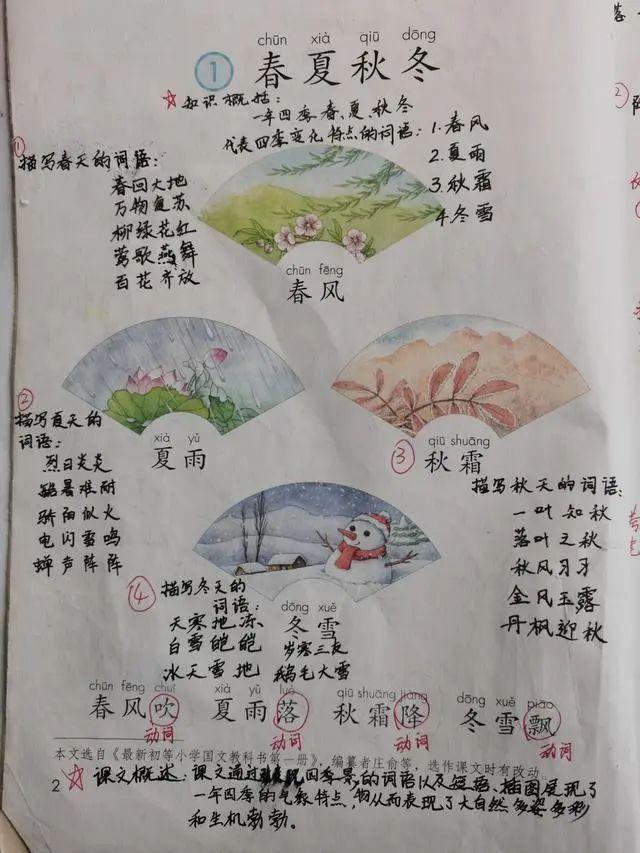 chūn xià qiū dōng
① 春夏秋冬
☆知识概括:
一年四季:春、夏、秋冬
代表四季变化特点的词语:1.春风
2.夏雨
3.秋霜
4.冬雪
① 描写春天的词语:
春回大地
万物复苏
柳绿花红
莺歌燕舞
百花齐放
chūn fēng
春风
② 描写夏天的
词语:
烈日炎炎
酷暑难耐
骄阳似火
电闪雷鸣
蝉声阵阵
xià yǔ
夏雨
qiū shuāng
③ 秋霜
描写秋天的词语:
一叶知秋
落叶之秋
秋风习习
金风玉露
丹枫迎秋
④ 描写冬天的
词语:
天寒地冻
白雪皑皑
冰天雪地
dōng xuě
冬雪
岁寒三友
鹅毛大雪
chūn fēng chuī
春风吹
动词
xià yǔ luò
夏雨落
动词
qiū shuāng jiàng
秋霜降
动词
dōng xuě piāo
冬雪飘
动词
本文选自《最新初等小学国文教科书第一册》,编纂者庄俞等,选作课文时有改动。
2 ☆课文概述:课文通过四季景的词语以及短语、插图展现了
一年四季的气象特点,从而表现了大自然多姿多彩
和生机勃勃。
落
②